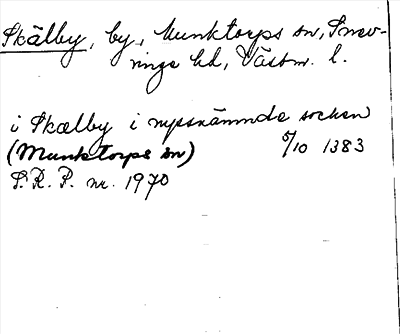 Skälby, by, Munktorps sn, Snev-
ringe hd, Västm. l.
i Skælby i nyssnämnde socken
(Munktorps sn) 5/10 1383
S.R.P. nr. 1970